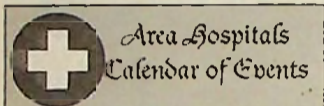 Area Hospitals
Calendar of Events